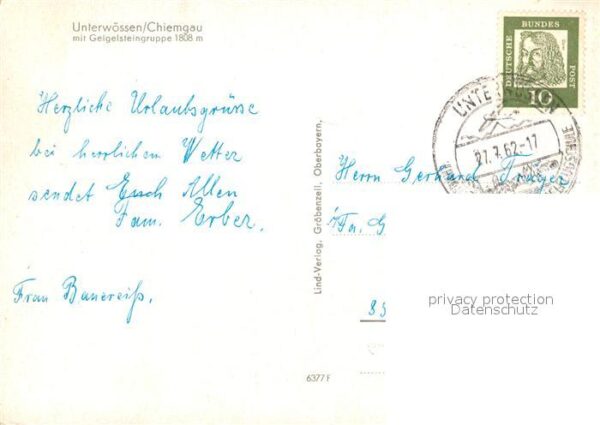 Unterwössen/Chiemgau
mit Geigelsteingruppe 1808 m
Herzliche Urlaubsgrüsse
bei herrlichen Wetter
sendet Euch Allen
Fam. Erber.
Frau Bauereiß.
Lind-Verlag, Gröbenzell, Oberbayern,
6377 F
DEUTSCHE
BUNDES
POST
10
27.7.62-17
Herrn Gerhard Träger
Fa. G
85
privacy protection
Datenschutz